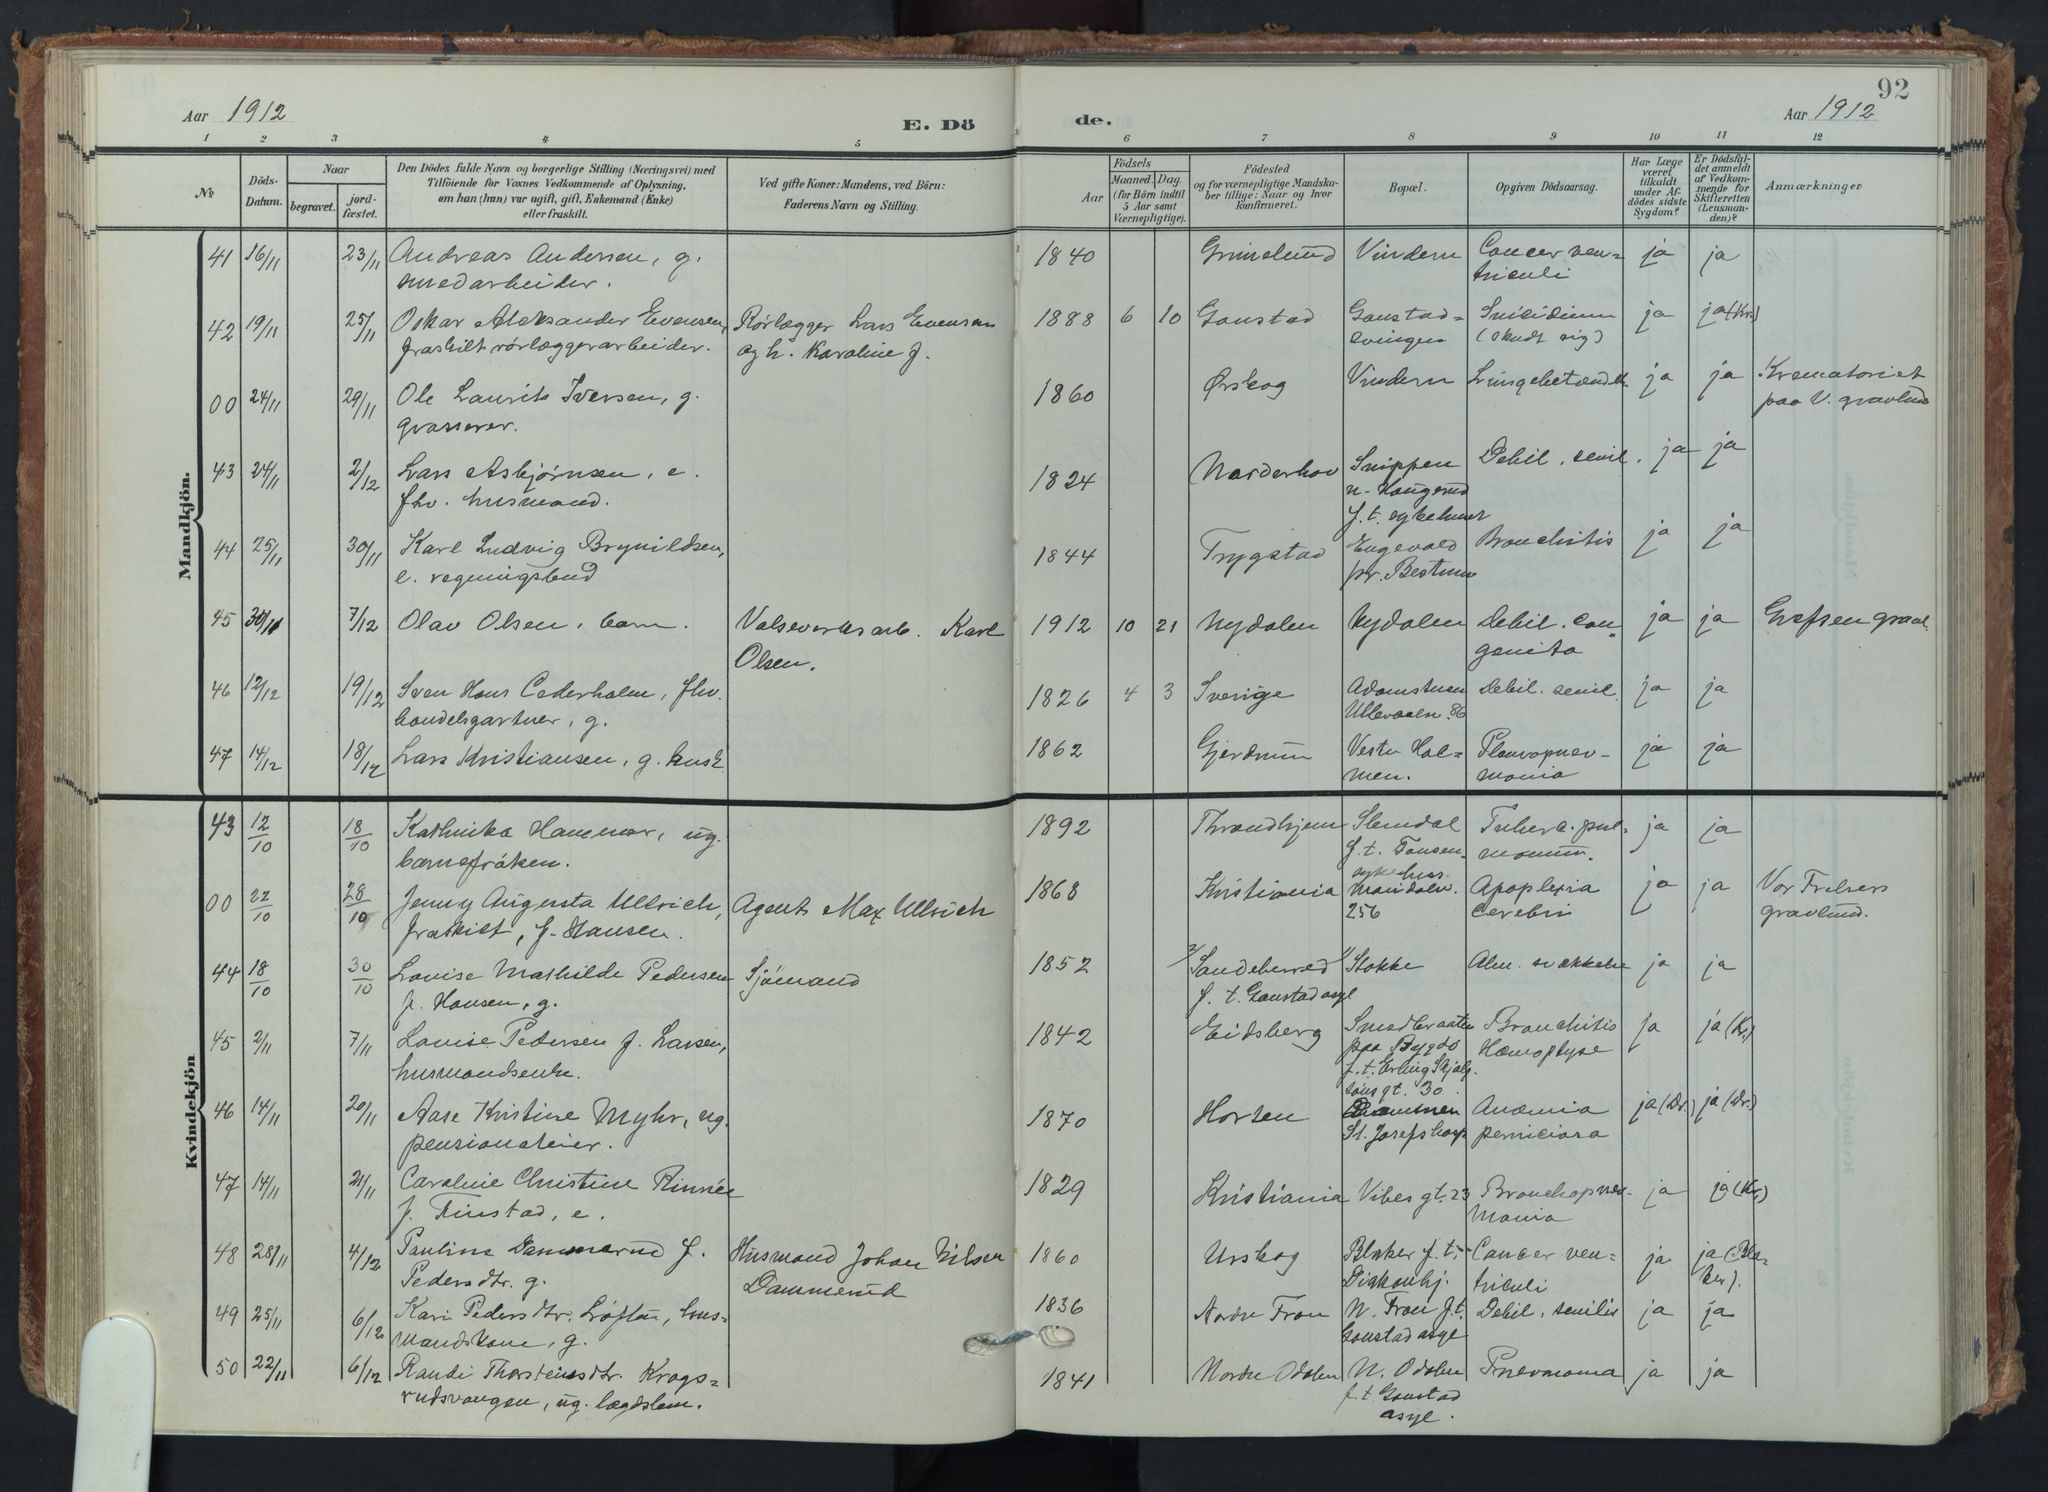 92
Aar 1912
E. Dö
de.
Aar 1912
1 2 3 4 5 6 7 8 9 10 11 12
No.
Döds-
Datum.
Naar
begravet.
jord-
fæstet.
Den Dödes fulde Navn og borgerlige Stilling (Næringsvei) med
Tilföiende for Voxnes Vedkommende af Oplysning,
om han (hun) var ugift, gift, Enkemand (Enke)
eller fraskilt.
Ved gifte Koner: Mandens, ved Börn:
Faderens Navn og Stilling.
Födsels
Aar
Maaned. Dag.
(for Börn indtil
5 Aar samt
Værnepligtige).
Födested
og for værnepligtige Mandska-
ber tillige: Naar og hvor
konfirmeret.
Bopæl.
Opgiven Dödsaarsag.
Har Læge
været
tilkaldt
under Af-
dödes sidste
Sygdom?
Er Dödsfal-
det anmeldt
af Vedkom-
mende for
Skifteretten
(Lensman-
den)?
Anmærkninger
Mandkjön.
41 16/11 23/11 Andreas Andersen, g. 1840 Grimelund Vindern Cancer ven- ja ja
smedarbeider. triculi
42 19/11 25/11 Oskar Aleksander Evensen, Rörlægger Lars Evensen 1888 6 10 Gaustad Gaustad- Suicidium ja ja (Kr.)
fraskilt rörlæggerarbeider. og h. Karoline f. svingen (skudt sig)
00 24/11 29/11 Ole Laurits Iversen, g. 1860 Ørskog Vindern Lungebetændelse ja ja Krematoriet
grosserer. paa V. gravlund
43 24/11 2/12 Lars Asbjørnsen, e. 1824 Norderhov Snippen Debil. senil. ja ja
fhv. husmand. u. Haugerud
f. t. sykehuset
44 25/11 30/11 Karl Ludvig Brynildsen, 1844 Trygstad Engevold Bronchitis ja ja
e. regningsbud pr. Bestum
45 30/11 7/12 Olav Olsen, barn. Valseverksarb. Karl 1912 10 21 Nydalen Nydalen Debil. con- ja ja Grefsen gravl.
Olsen. genita
46 12/12 19/12 Sven Hans Cederholm, fhv. 1826 4 3 Sverige Adamstuen Debil. senil. ja ja
handelsgartner, g. Ullevaalv. 86
47 14/12 18/12 Lars Kristiansen, g. kusk 1862 Gjerdrum Vestre Hol- Pleuropnev- ja ja
men. monia
Kvindekjön
43 12/10 18/10 Kathinka Hammer, ug. 1892 Throndhjem Slemdal Tuberc. pul- ja ja
barnefröken. f. t. Tonsen- monum.
sykehus.
00 22/10 28/10 Jenny Augusta Ullrich, Agent Max Ullrich 1868 Kristiania Maridalsv. Apoplexia ja ja Vor Frelsers
fraskilt, f. Hansen. 256 cerebri gravlund.
44 18/10 30/10 Louise Mathilde Pedersen Sjömand 1852 2/ Sandeherred 1/ Stokke Alm. svækkelse ja ja
f. Hansen, g. f. t. Gaustad asyl
45 2/11 7/11 Louise Pedersen f. Larsen, 1842 Eidsberg Smedbraaten Bronchitis ja ja (Kr.)
husmandsenke. paa Bygdö Hæmoptyse
f. t. Erling Skjalg-
sönsgt. 30
46 14/11 20/11 Aase Kristine Myhr, ug. 1870 Horten Drammen Anæmia ja (Dr.) ja (Dr.)
pensionateier. St. Josefs hosp perniciosa
47 14/11 21/11 Caroline Christine Rinnée 1829 Kristiania Vibes gt. 23 Bronchopnev- ja ja (Kr.)
f. Finstad, e. monia
48 28/11 4/12 Pauline Dammerud f. Husmand Johan Nilsen 1860 Urskog Blaker f. t. Cancer ven- ja ja (Bla-
Pedersdtr. g. Dammerud Diakonhj. triculi ker).
49 25/11 6/12 Kari Pedersdtr. Löftun, hus- 1836 Nordre Fron N. Fron f. t. Debil. senilis ja ja
mandskone, g. Gaustad asyl
50 22/11 6/12 Randi Thorsteinsdtr. Krogs- 1841 Nordre Odalen N. Odalen Pnevmonia ja ja
rudsvangen, ug. lægdslem. f. t. Gaustad
asyl.